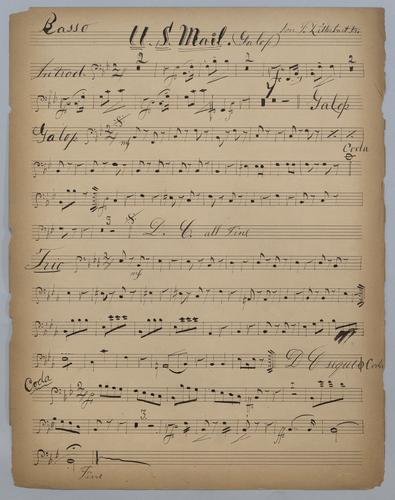 Basso
U. S. Mail. (Galop)
Introd.
2 2 2 2
Galop
Galop
mf
Coda
3
D. C. all Fine
Trio
mf
D. C. segue Coda
Coda
3.
Fine